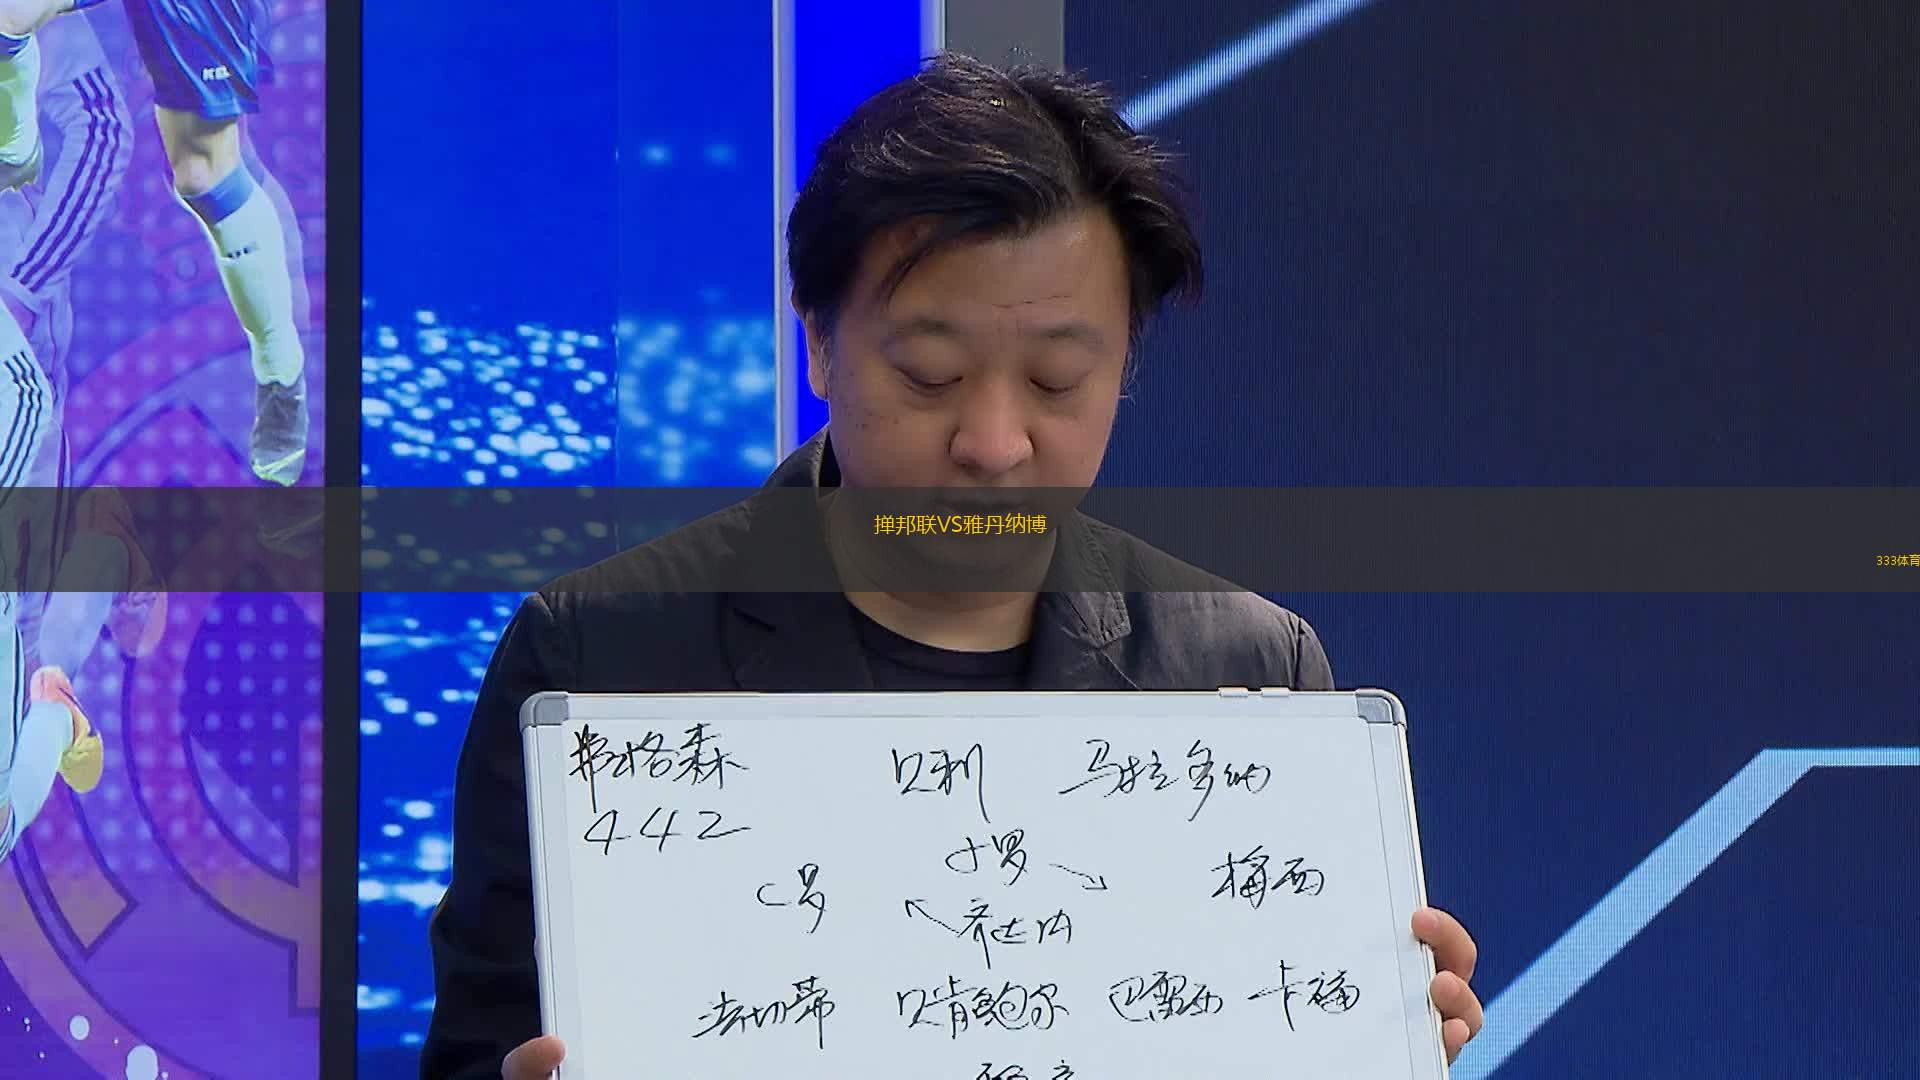 掸邦联VS雅丹纳博
333体育
弗格森 贝利 马拉多纳
442
小罗
C罗 梅西
齐达内
法切蒂 贝肯鲍尔 巴雷西 卡福